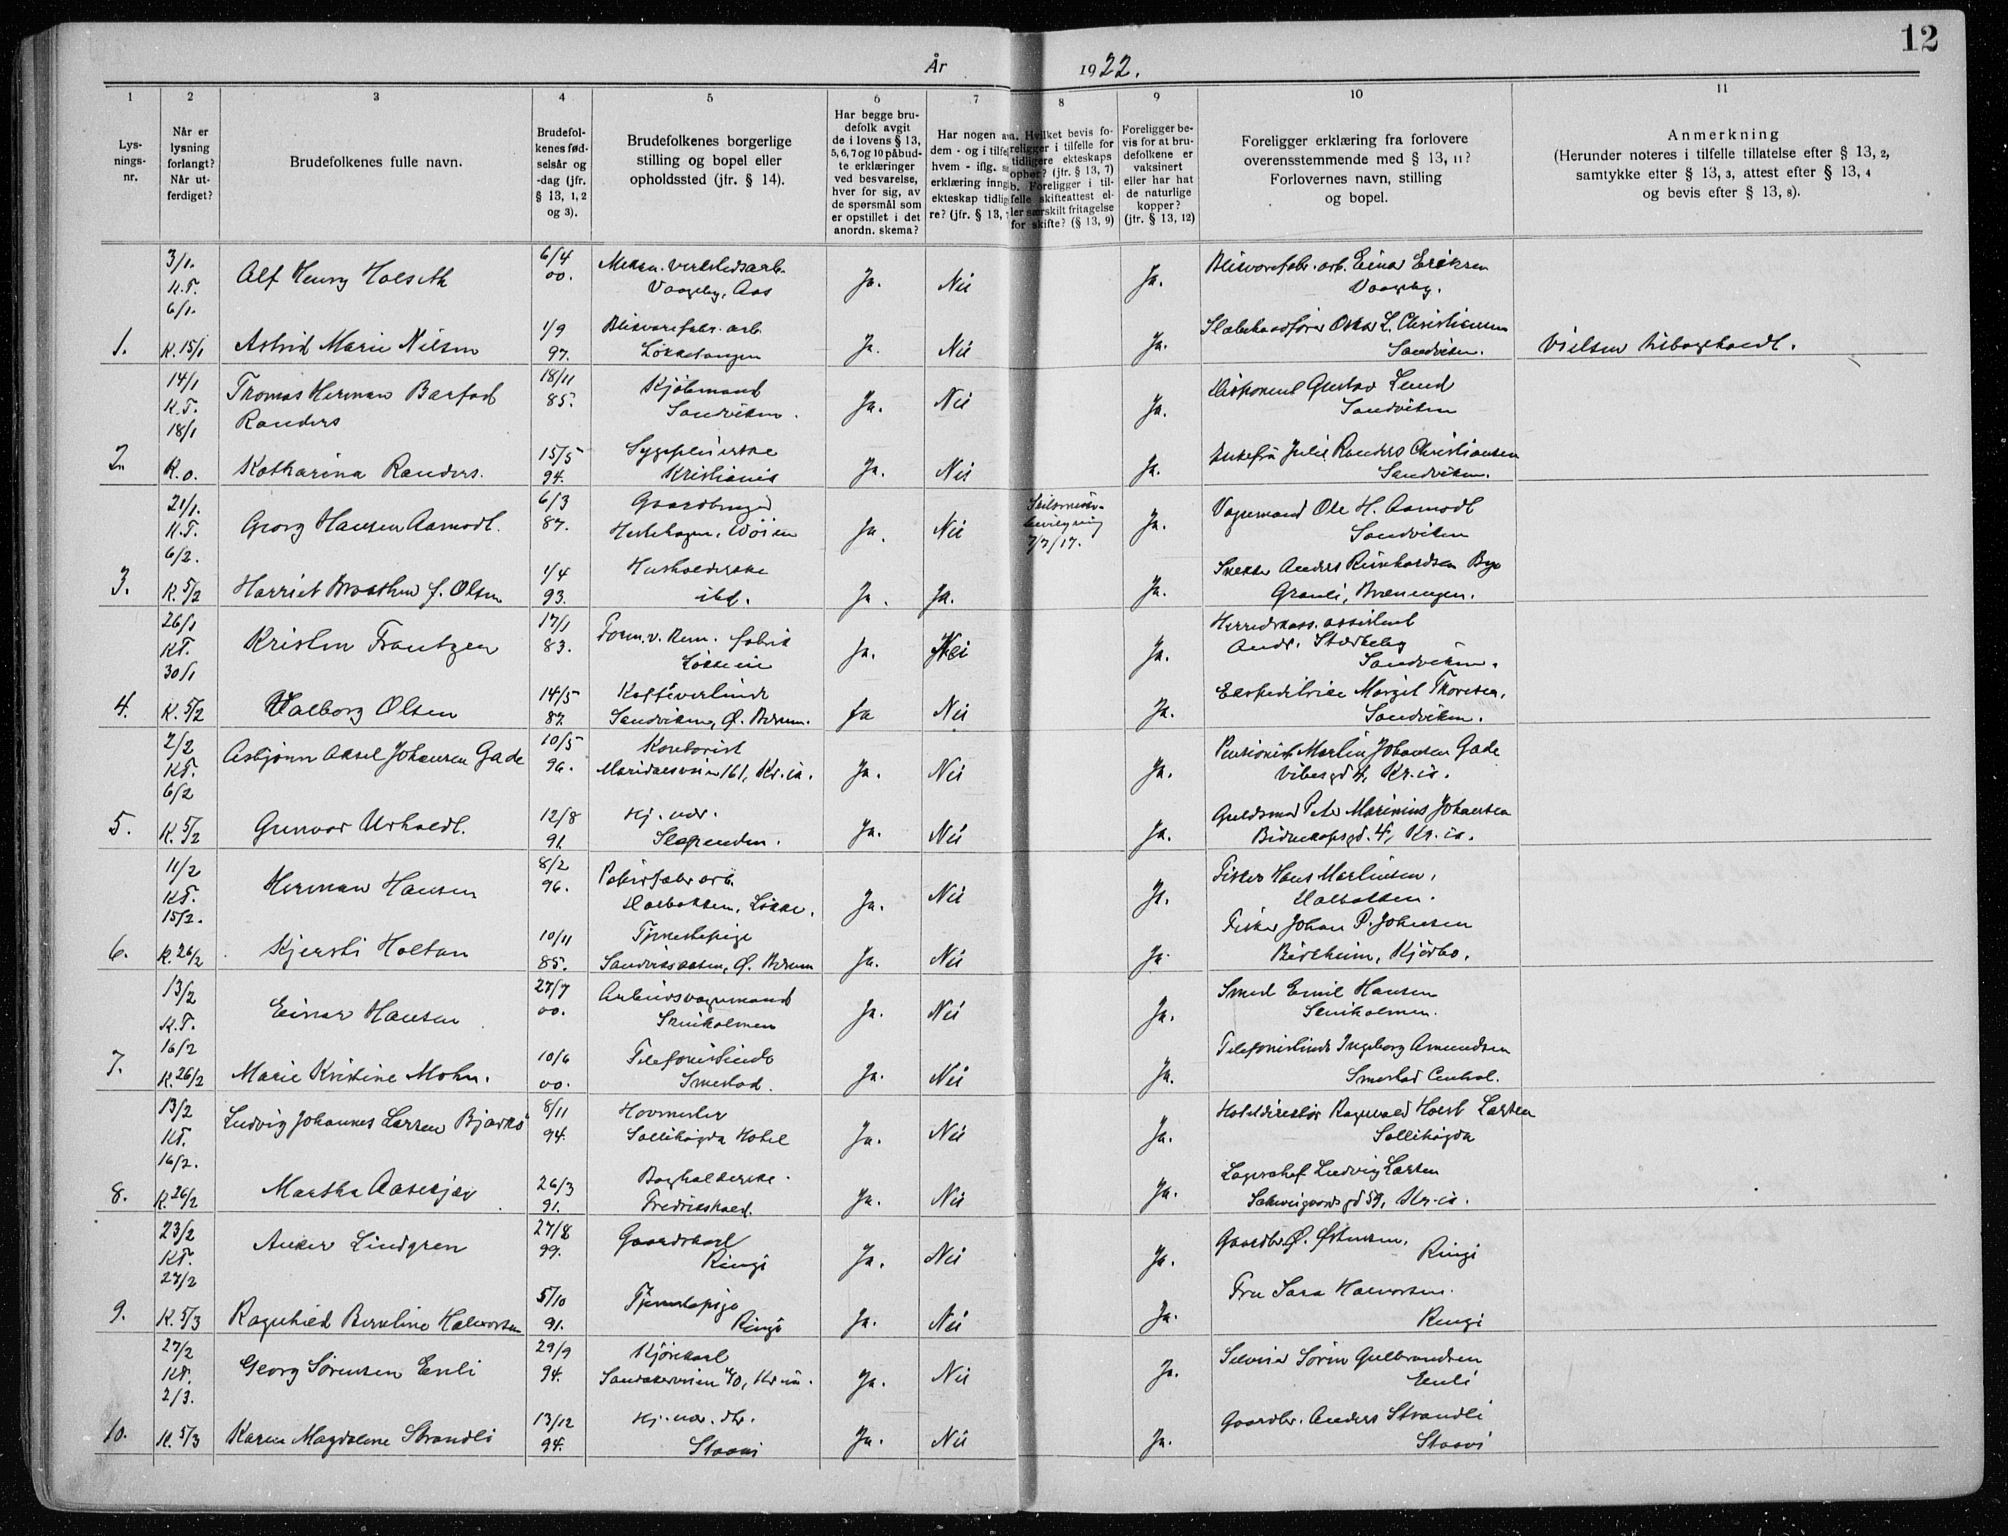 12
År 1922.
1
2
3
4
5
6
7
8
9
10
11
Lys-
nings-
nr.
Når er
lysning
forlangt?
Når ut-
ferdiget?
Brudefolkenes fulle navn.
Brudefol-
kenes fød-
selsår og
-dag (jfr.
§ 13, 1, 2
og 3).
Brudefolkenes borgerlige
stilling og bopel eller
opholdssted (jfr. § 14).
Har begge bru-
defolk avgit
de i lovens § 13,
5, 6, 7 og 10 påbud-
te erklæringer
ved besvarelse,
hver for sig, av
de spørsmål som
er opstillet i det
anordn. skema?
Har nogen av
dem - og i tilfe
hvem - iflg.
erklæring inng
ekteskap tidlig
re? (jfr. § 13,
a. Hvilket bevis fo-
religger i tilfelle for
tidligere ekteskaps
ophør? (jfr. § 13, 7)
b. Foreligger i til-
felle skifteattest el-
ler særskilt fritagelse
for skifte? (§ 13, 9)
Foreligger be-
vis for at bru-
defolkene er
vaksinert
eller har hat
de naturlige
kopper?
(jfr. § 13, 12)
Foreligger erklæring fra forlovere
overensstemmende med § 13, 11?
Forlovernes navn, stilling
og bopel.
Anmerkning
(Herunder noteres i tilfelle tillatelse efter § 13, 2,
samtykke efter § 13, 3, attest efter § 13, 4
og bevis efter § 13, 8).
3/1.
K.T.
6/1.
Alf Henry Holseth
6/4
00.
Mekan. verkstedsarb.
Vaageby, Aas
Ja.
Nei
Ja.
Blikvarefabr. arb. Einar Eriksen
Vaageby.
1.
K. 15/1
Astrid Marie Nilsen
1/9
97.
Blikvarefabr. arb.
Løkketangen
Ja.
Nei
Ja.
Oskar L. Christiansen
Sandviken.
Vielsen tilbageholdt.
14/1
K.T.
18/1
Thomas Herman Barfod
Randers
18/11
85.
Kjøbmand
Sandviken.
Ja.
Nei
Ja.
Disponent Gustav Lund
Sandviken
2.
K. o.
Katharina Randers.
15/5
94.
Sygepleierske
Kristiania
Ja.
Nei
Ja.
Enkefru Julie Randers Christiansen
Sandviken.
21/1.
K.T.
6/2.
Georg Hansen Aamodt.
6/3
87.
Gaardbruger
Hestehagen, Wøien
Ja.
Nei
Skilsmisse-
bevilgning
7/7/17.
Ja.
Vognmand Ole H. Aamodt
Sandviken
3.
K. 5/2
Harriet Braathen f. Olsen
1/4
93.
Husholderske
ibd.
Ja.
Ja.
Ja.
Snekker Anders Reinhardsen Bye
Granli,
26/1
KT.
30/1
Kristen Frantzen
17/1
83.
Form. v. Rem. fabrik
Løkkeveie
Ja.
Nei
Ja.
Herredskass. assistent
Andr. Starkeby
Sandviken.
4.
K. 5/2
Valborg Olsen
14/5
87.
Kaffévertinde
Sandviken, Ø. Bærum.
Ja
Nei
Ja.
Ekspeditrice Margit Thoresen,
Sandviken.
2/2
KT.
6/2
Asbjønn Aksel Johansen Gade
10/5
96.
Kontorist
Maridalsveien 161, Kr.ia.
Ja.
Nei
Ja.
Pensionist Martin Johansen Gade
Vibesgd 4, Kr.ia.
5.
K. 5/2
Gunvor Urholdt.
12/8
91.
Hj. vær.
Slependen.
Ja.
Nei
Ja.
Guldsmed Peter Marinius Johansen
Bidenkapsgd. 4, Kr.ia.
11/2
KT.
15/2.
Herman Hansen
8/2
96.
Papirfabr. arb.
Ja.
Nei
Ja.
Fisker Hans Martinsen,
6.
K. 26/2
Kjersti Holtan
10/11
85.
Tjenestepige
Sandviksaasen, Ø. Bærum
Ja.
Nei
Ja.
Fisker Johan P. Johansen
Birkheim, Kjørbo.
13/2
K.T.
16/2
Einar Hansen
27/7
00.
Arbeidsvognmand
Sneiholmen
Ja.
Nei
Ja.
Smed Emil Hansen
Sneiholmen.
7.
K. 26/2
Marie Kristine Mohn.
10/6
00.
Telefonistinde
Smestad.
Ja.
Nei
Ja.
Telefonistinde Ingeborg Amundsen
Smestad Central.
13/2
KT.
16/2.
Ludvig Johannes Larsen Bjarkø
8/11
94.
Hovmester
Sollihøgda Hotel
Ja.
Nei
Ja.
Hoteldirektør Ragnvald Holst Larsen
Sollihøgda
8.
K. 26/2
Martha Aasekjær
26/3
91.
Bogholderske.
Fredrikshald.
Ja.
Nei
Ja.
Lagerchef Ludvig Larsen
Schweigaards gd 59, Kr.ia.
23/2
KT.
27/2
Anker Lindgren
27/8
99.
Gaardskarl
Ringi
Ja.
Nei
Ja.
Gaardbr. Ø. Østensen,
Ringi
9.
K. 5/3
Ragnhild Berntine Halvorsen
5/10
91.
Tjenestepige
Ringi
Ja.
Nei
Ja.
Fru Sara Halvorsen.
Ringi
27/2
KT.
2/3.
Georg Sørensen Enli
29/9
94.
Kjørekarl
Sandakerveien 40, Kr.ia.
Ja.
Nei
Ja.
Søren Gulbrandsen
Enli
10.
K. 5/3
Karen Magdalene Strandli
13/12
94.
Hj. vær. dtr.
Staavi
Ja.
Nei
Ja.
Gaardbr. Anders Strandli
Staavi